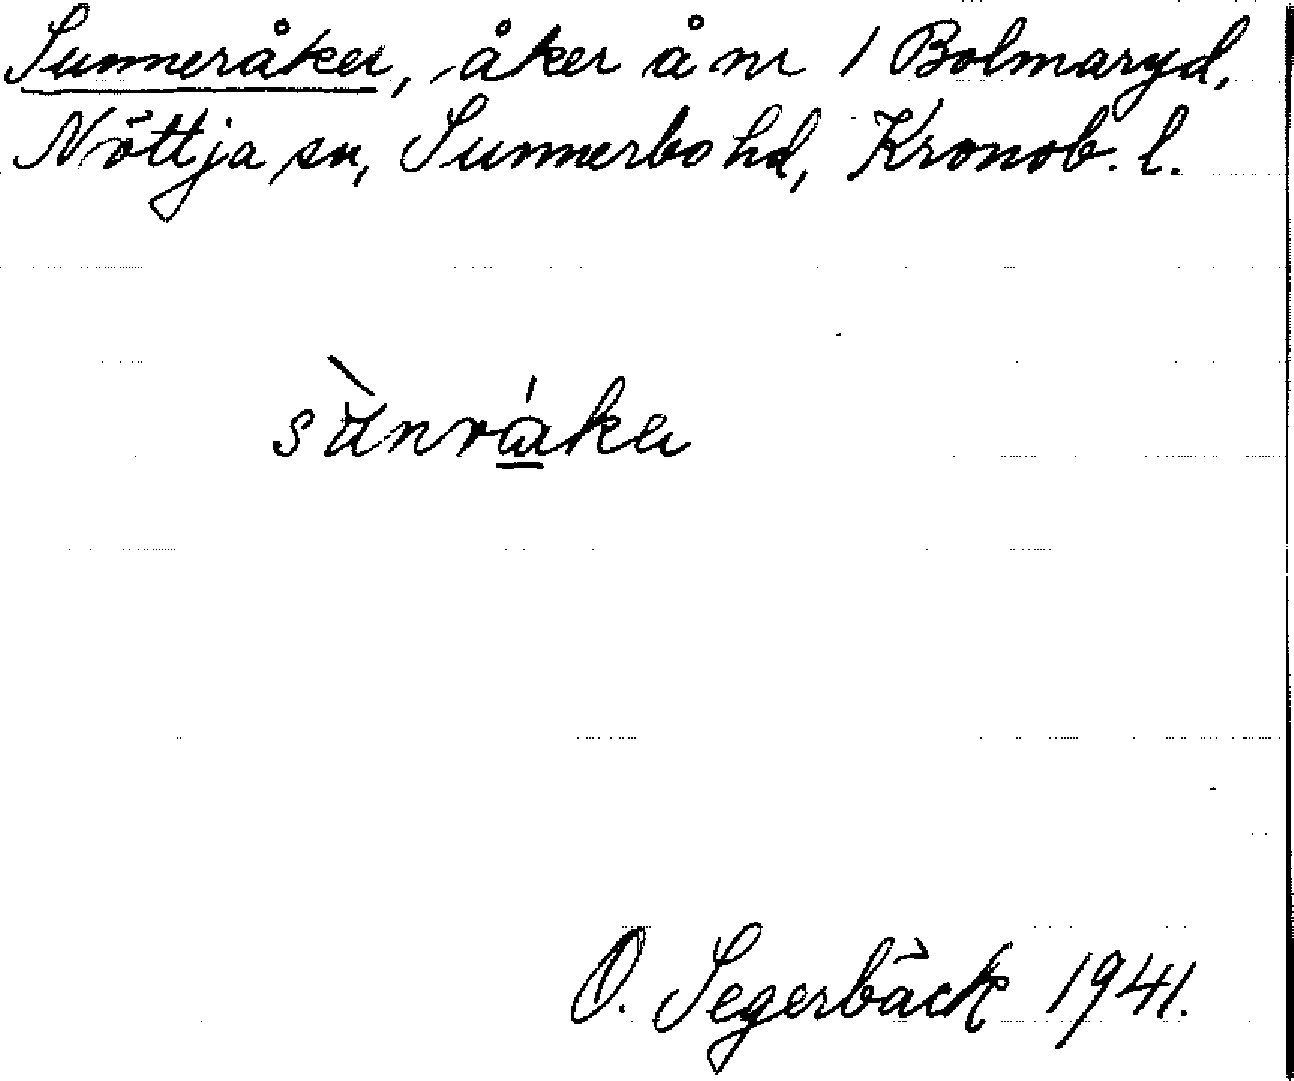 Sunneråker, åker å nr 1 Bolmaryd,
Nöttja sn, Sunnerbo hd, Kronob. l.
sùnråka
O. Segerbäck 1941.